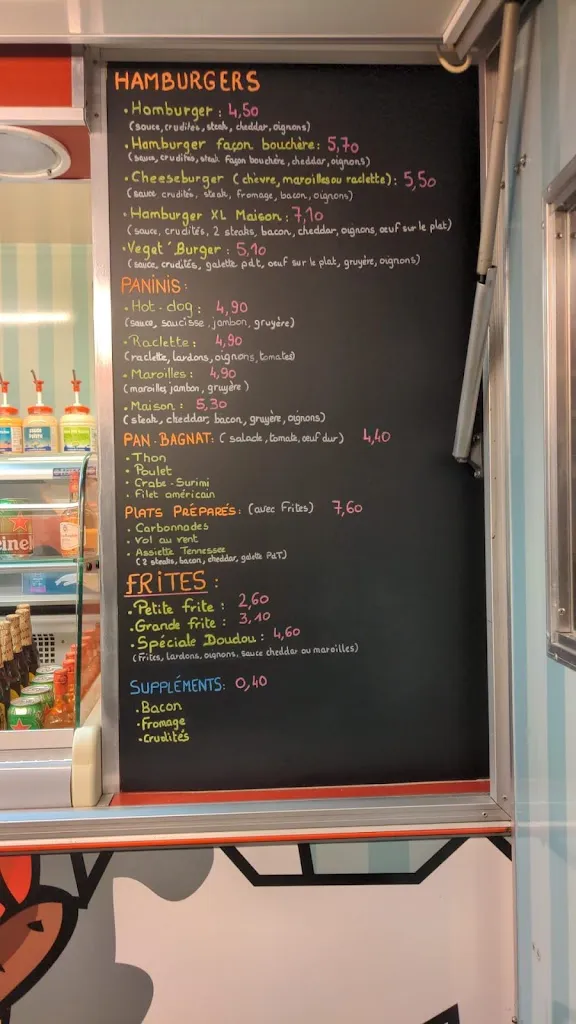 HAMBURGERS
• Hamburger : 4,50
(sauce, crudités, steak, cheddar, oignons)
• Hamburger façon bouchère : 5,70
(sauce, crudités, steak façon bouchère, cheddar, oignons)
• Cheeseburger (chèvre, maroilles ou raclette) : 5,50
(sauce crudités, steak, fromage, bacon, oignons)
• Hamburger XL Maison : 7,10
(sauce, crudités, 2 steaks, bacon, cheddar, oignons, oeuf sur le plat)
• Veget' Burger : 5,10
(sauce, crudités, galette p.d.t, oeuf sur le plat, gruyère, oignons)
PANINIS :
• Hot-dog : 4,90
(sauce, saucisse, jambon, gruyère)
• Raclette : 4,90
(raclette, lardons, oignons, tomates)
• Maroilles : 4,90
(maroilles, jambon, gruyère)
• Maison : 5,30
(steak, cheddar, bacon, gruyère, oignons)
PAN-BAGNAT : (salade, tomate, oeuf dur) 4,40
• Thon
• Poulet
• Crabe-Surimi
• Filet américain
PLATS PRÉPARÉS : (avec Frites) 7,60
• Carbonnades
• Vol au vent
• Assiette Tennessee
(2 steaks, bacon, cheddar, galette P.d.T)
FRITES :
• Petite frite : 2,60
• Grande frite : 3,10
• Spéciale Doudou : 4,60
(Frites, lardons, oignons, sauce cheddar ou maroilles)
SUPPLÉMENTS : 0,40
• Bacon
• Fromage
• Crudités